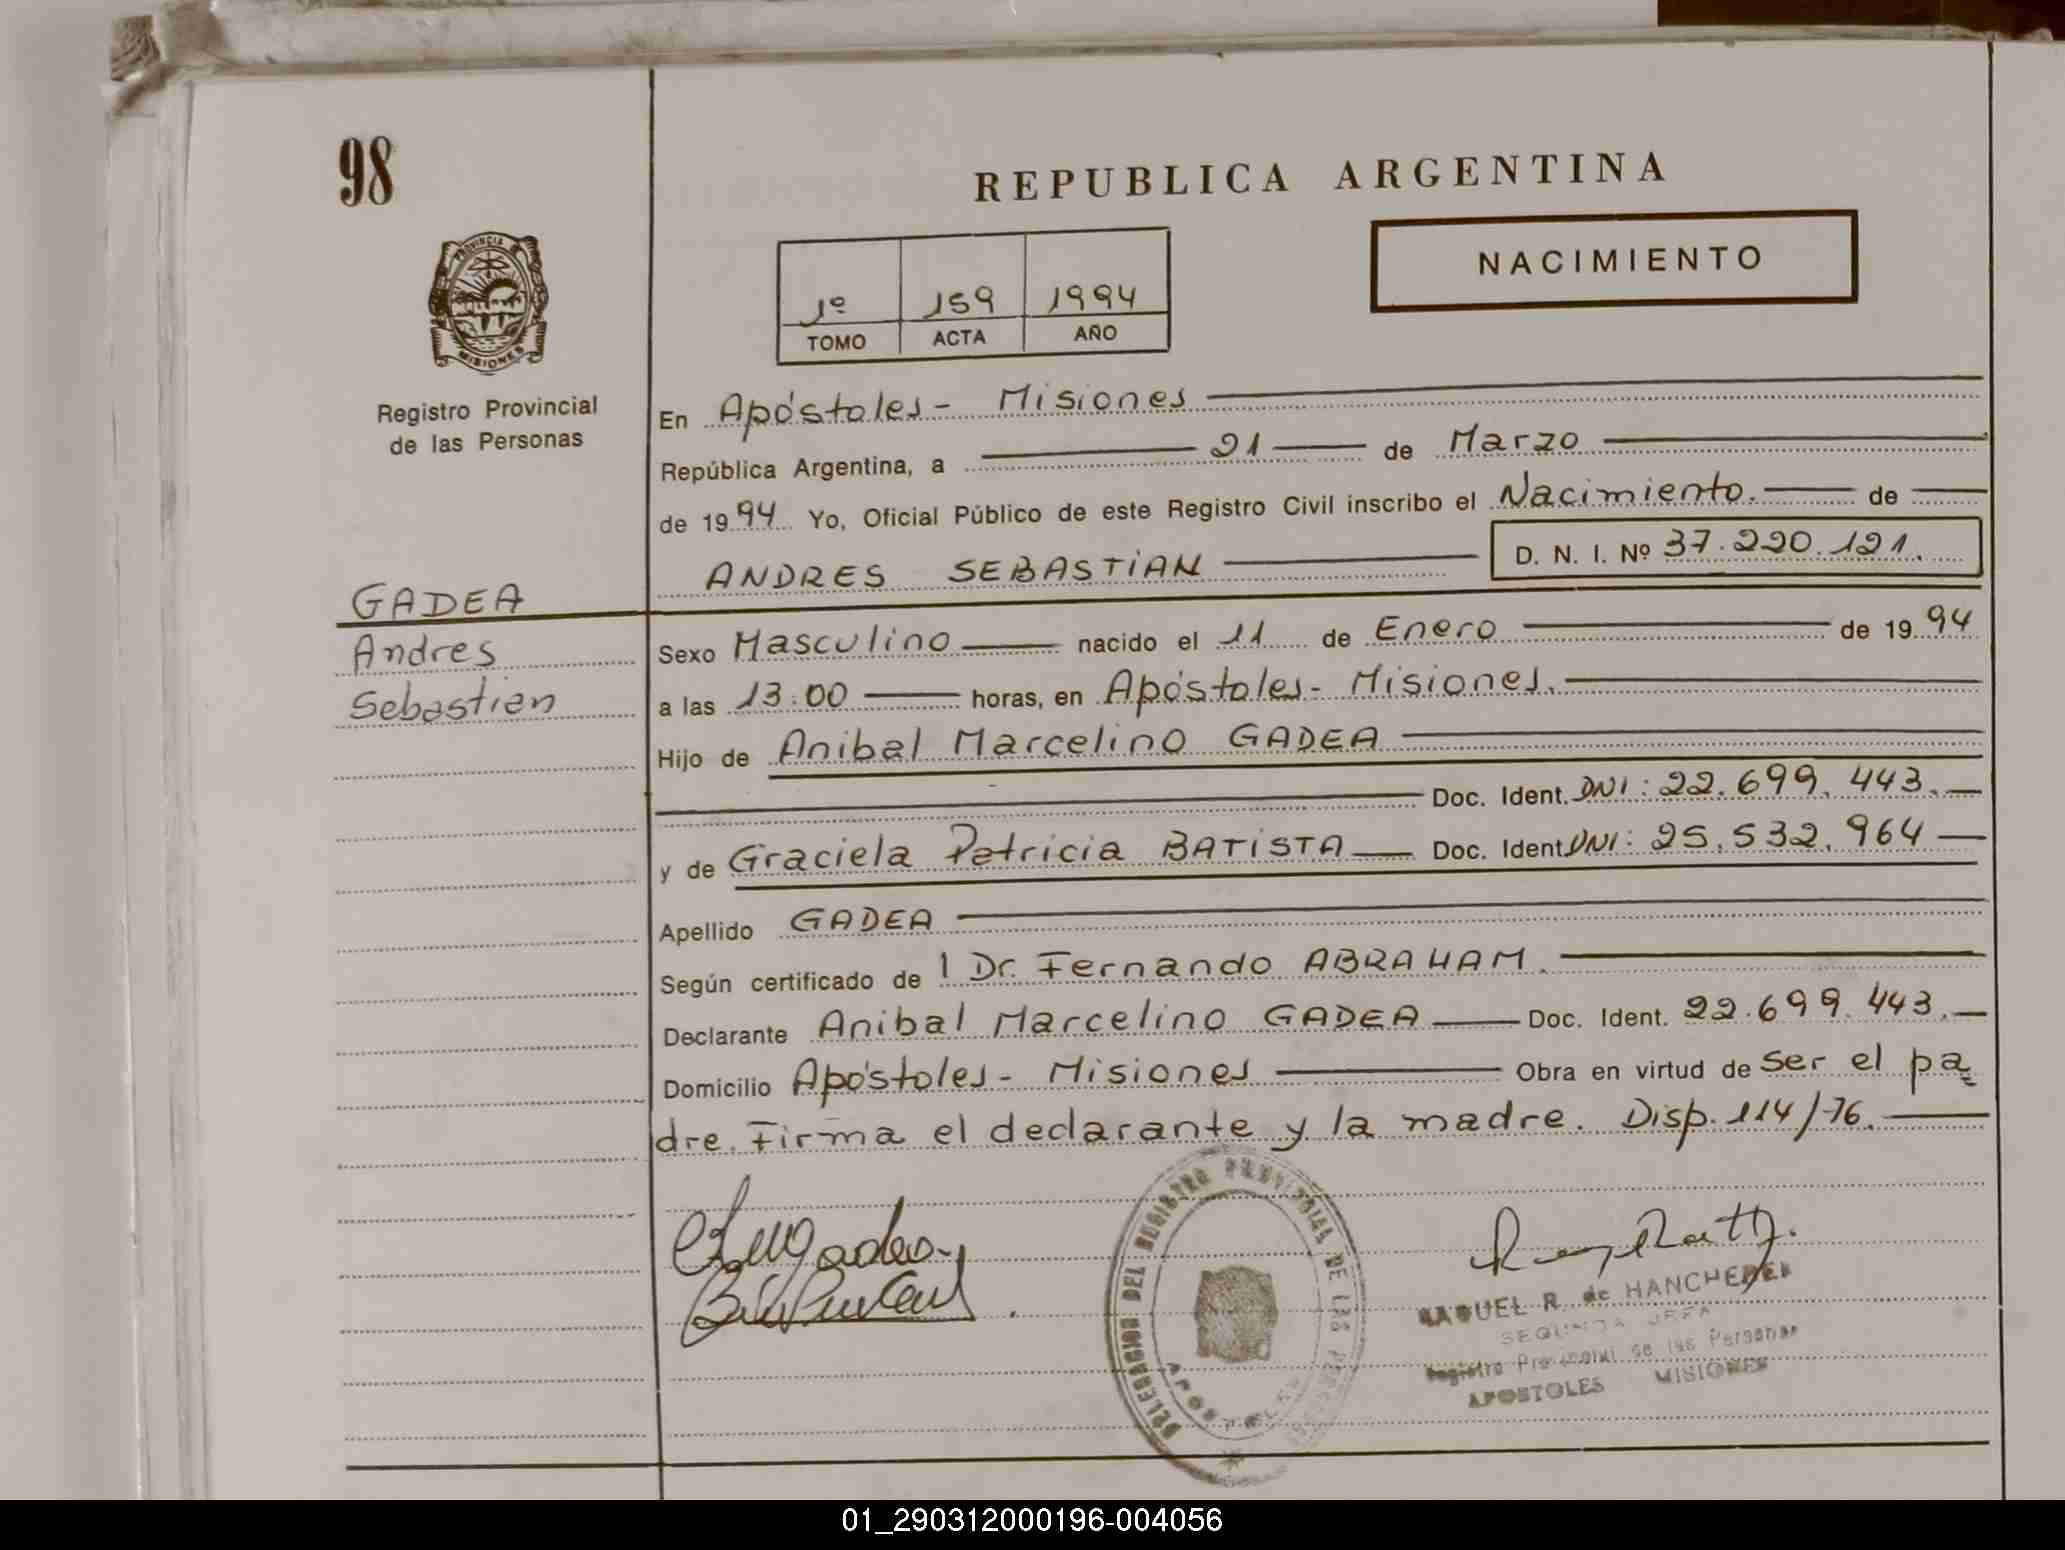 98
REPUBLICA ARGENTINA
PROVINCIA DE
MISIONES
Registro Provincial
de las Personas
NACIMIENTO
1º 159 1994
TOMO ACTA AÑO
En Apóstoles - Misiones
República Argentina, a 21 de Marzo
de 1994 Yo, Oficial Público de este Registro Civil inscribo el Nacimiento. de
ANDRES SEBASTIAN D. N. I. Nº 37.220.121.
GADEA
Andres
Sebastian
Sexo Masculino nacido el 11 de Enero de 1994
a las 13:00 horas, en Apóstoles - Misiones.
Hijo de Anibal Marcelino GADEA
Doc. Ident. DNI: 22.699.443.
y de Graciela Patricia BATISTA Doc. Ident. DNI: 25.532.964
Apellido GADEA
Según certificado de l Dr. Fernando ABRAHAM.
Declarante Anibal Marcelino GADEA Doc. Ident. 22.699.443.
Domicilio Apóstoles - Misiones Obra en virtud de ser el pa=
dre. Firma el declarante y la madre. Disp. 114/76.
DELEGACION DEL REGISTRO PROVINCIAL DE LAS PERSONAS
APOSTOLES
RAQUEL R. de
SEGUNDA JEFA
Registro Provincial de las Personas
APOSTOLES MISIONES
01_290312000196-004056